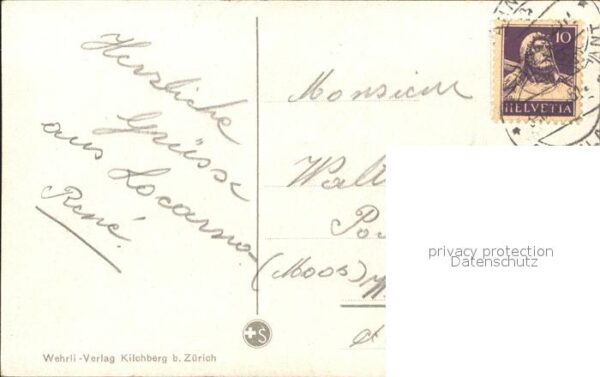 Herzliche
Grüsse
aus Locarno
René.
Monsieur
Walt
Po
(Moos)
10
HELVETIA
S
Wehrli-Verlag Kilchberg b. Zürich
privacy protection
Datenschutz